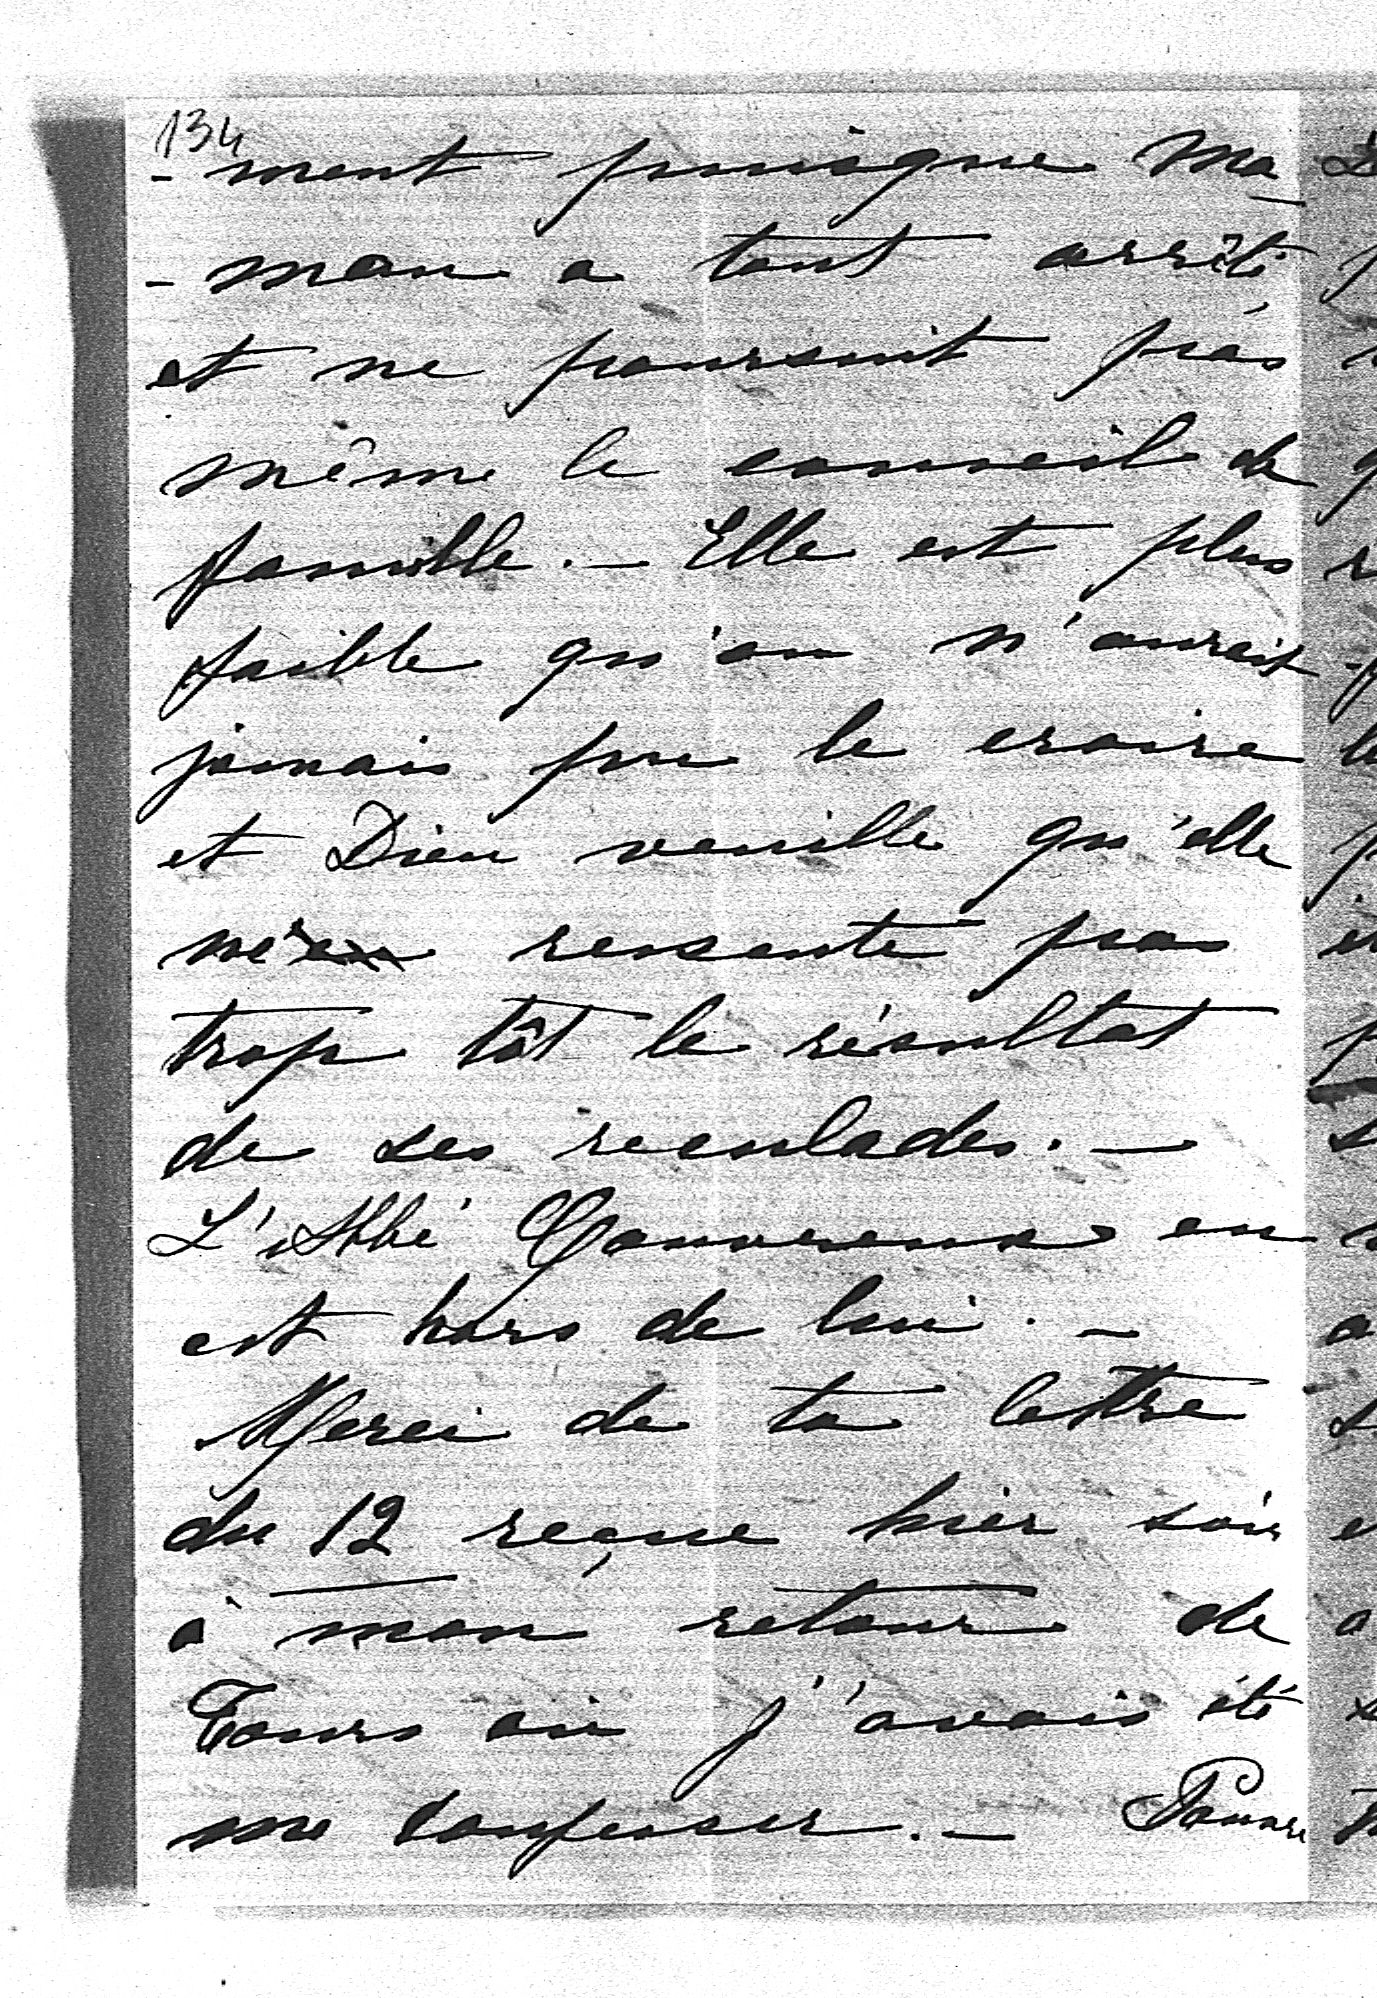 134
- ment puisque ma_
- man a tout arrêté
et ne poursuit pas
même le conseil de
famille. — Elle est plus
faible qu'on n'aurait
jamais pu le croire
et Dieu veuille qu'elle
ne ressente pas
trop tôt le résultat
de ses reculades. —
L'Abbé Couvreux en
est hors de lui. —
Merci de ta lettre
du 12 reçue hier soir
à mon retour de
Tours où j'avais été
me confesser. — Pauvre